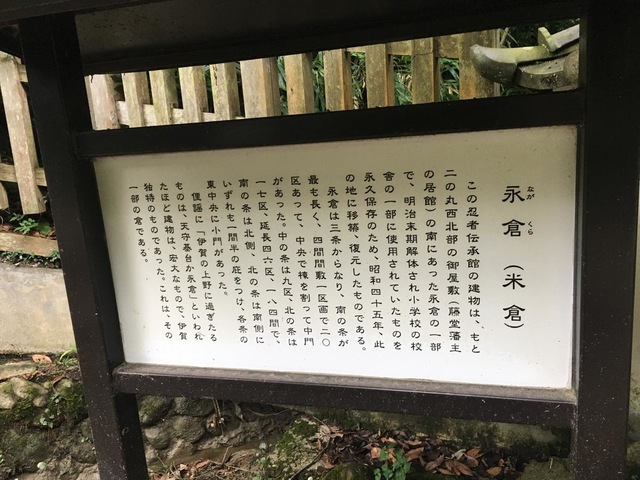 永倉（米倉）
なが くら
この忍者伝承館の建物は、もと
二の丸西北部の御屋敷（藤堂藩主
の居館）の南にあった永倉の一部
で、明治末期解体され小学校の校
舎の一部に使用されていたものを
永久保存のため、昭和四十五年、此
の地に移築、復元したものである。
永倉は三条からなり、南の条が
最も長く、四間間敷一区画で二〇
区あって、中央で棟を割って中門
があった。中の条は九区、北の条は
一七区、延長四六区、一八四間で、
南の条は北側、北の条は南側に
いずれも一間半の庇をつけ、各条の
東中央に小門があった。
俚謡に「伊賀の上野に過ぎたる
ものは、天守基台か永倉」といわれ
たほど建物は、宏大なもので、伊賀
独特のものであった。これは、その
一部の倉である。